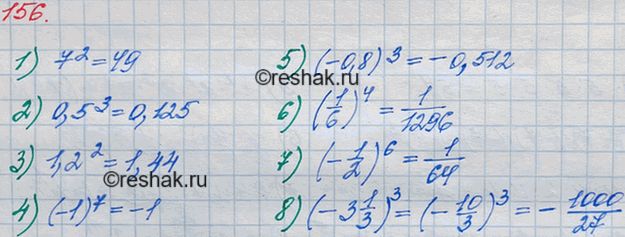 156.
1) 7² = 49
2) 0,5³ = 0,125
3) 1,2² = 1,44
4) (-1)⁷ = -1
5) (-0,8)³ = -0,512
6) (1/6)⁴ = 1/1296
7) (-1/2)⁶ = 1/64
8) (-3 1/3)³ = (-10/3)³ = -1000/27
©reshak.ru
©reshak.ru
©reshak.ru